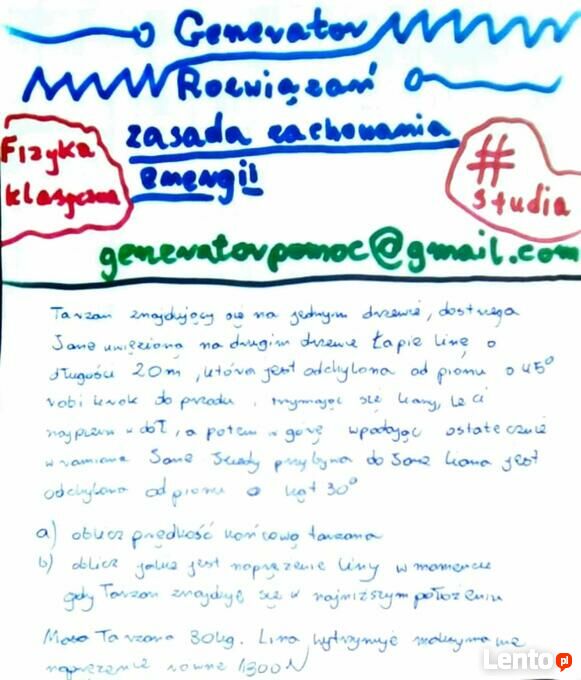 Generator
Rozwiązań
zasada zachowania
energii
Fizyka
klasyczna
#
studia
generatorpomoc@gmail.com
Tarzan znajdujący się na jednym drzewie, dostrzega
Jane uwięzioną na drugim drzewie Łapie linę o
długości 20m, która jest odchylona od pionu o 45°
robi krok do przodu, trzymając się liany, leci
najpierw w dół, a potem w górę wpadając ostatecznie
w ramiona Jane kiedy przybywa do Jane liana jest
odchylona od pionu o kąt 30°
a) oblicz prędkość końcową tarzana
b) oblicz jakie jest naprężenie liny w momencie
gdy Tarzan znajduje się w najniższym położeniu
Masa Tarzana 80kg. Lina wytrzymuje maksymalne
naprężenie równe 1300N
Lento.pl